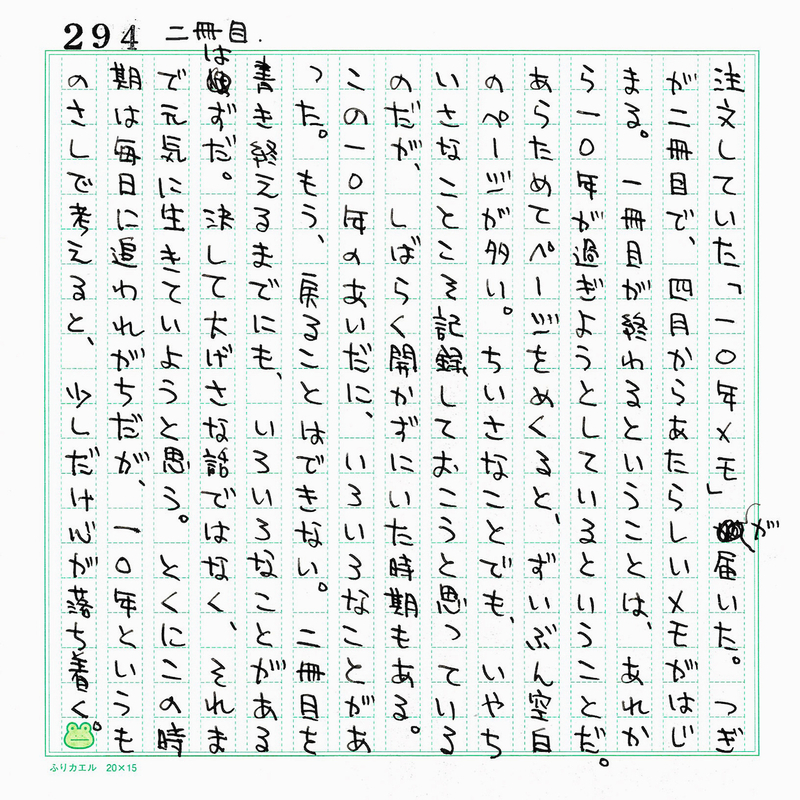 294 二冊目.
注文していた「一〇年メモ」が届いた。つぎ
が二冊目で、四月からあたらしいメモがはじ
まる。一冊目が終わるということは、あれか
ら一〇年が過ぎようとしているということだ。
あらためてページをめくると、ずいぶん空白
のページが多い。ちいさなことでも、いやち
いさなことこそ記録しておこうと思っている
のだが、しばらく開かずにいた時期もある。
この一〇年のあいだに、いろいろなことがあ
った。もう、戻ることはできない。二冊目を
書き終えるまでにも、いろいろなことがある
はずだ。決して大げさな話ではなく、それま
で元気に生きていようと思う。とくにこの時
期は毎日に追われがちだが、一〇年というも
のさしで考えると、少しだけ心が落ち着く。
ふりカエル 20×15